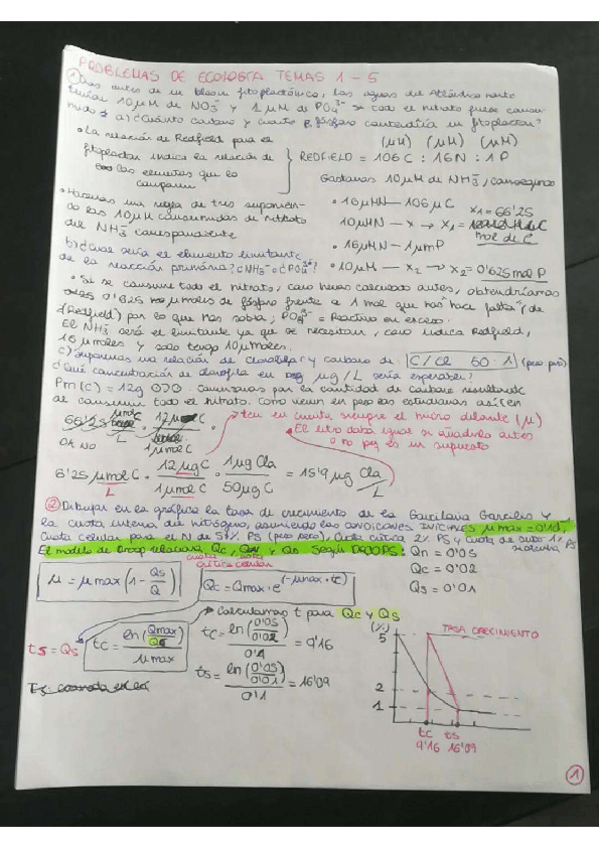 PROBLEMAS DE ECOLOGÍA TEMAS 1 - 5
① Días antes de un bloom fitoplanctónico, las aguas del Atlántico norte
tenían 10 μM de NO3⁻ y 1 μM de PO4³⁻. Si todo el nitrato fuese consu-
mido a) ¿Cuánto carbono y cuánto fósforo contendría un fitoplacton?
• La relación de Redfield para el
fitoplacton indica la relación de
los elementos que lo
componen
(μM) (μM) (μM)
REDFIELD = 106 C : 16N : 1 P
Gastamos 10 μM de NH3⁻,
• Hacemos una regla de tres suponien-
do las 10 μM consumidas de nitrato
del NH3⁻ correspondiente
• 16 μMN — 106 μC
10 μMN — x → x1 = 66'25
mol de C
• 16 μMN — 1 μmP
• 10 μM — x2 → x2 = 0'625 mol P
b) ¿Cuál sería el elemento limitante
de la reacción primaria? ¿NH3⁻ o ¿PO4³⁻?
• Si se consume todo el nitrato, como hemos calculado antes, obtendríamos
0'625 μmoles de fósforo frente a 1 mol que nos hace falta
(Redfield) por lo que nos sobra; PO4³⁻ = Reactivo en exceso.
El NH3⁻ será el limitante ya que se necesitan, como indica Redfield,
16 μmoles y solo tengo 10 μmoles.
c) Suponemos una relación de clorofila y carbono de: C/Cla 50:1 (peso peso)
¿Qué concentración de clorofila en μg/L sería esperable?
Pm (C) = 12g Comenzamos por la cantidad de carbono resultante
al consumir todo el nitrato. Como
66'25 μmol C / L · 12 μg C / 1 μmol C
OK NO
→ ten en cuenta siempre el micro delante (μ)
El litro daba igual si añadirlo antes
o no pq es un supuesto
6'25 μmol C / L · 12 μg C / 1 μmol C · 1 μg Cla / 50 μg C = 15'9 μg Cla / L
② Dibujar en la gráfica la tasa de crecimiento de la Gracilaria Gracilis y
la cuota interna de nitrógeno, asumiendo las CONDICIONES INICIALES μmax = 0'10,
Cuota celular para el N de 5% PS (peso seco), Cuota crítica 2% PS y Cuota de 1% PS
El modelo de Droop relaciona Qc, Qm y Qs según DROOPS:
cuota celular
cuota crítica
Qm = 0'05
Qc = 0'02
Qs = 0'01
μ = μmax (1 - Qs/Q)
Qc = Qmax · e^(-μmax · tc)
→ Calculamos t para Qc y Qs
ts = Qs
tc = ln (Qmax/Qc) / μmax
tc = ln (0'05/0'02) / 0'1 = 9'16
ts = ln (0'05/0'01) / 0'1 = 16'09
(%)
TASA CRECIMIENTO
5
2
1
tc ts
9'16 16'09
1